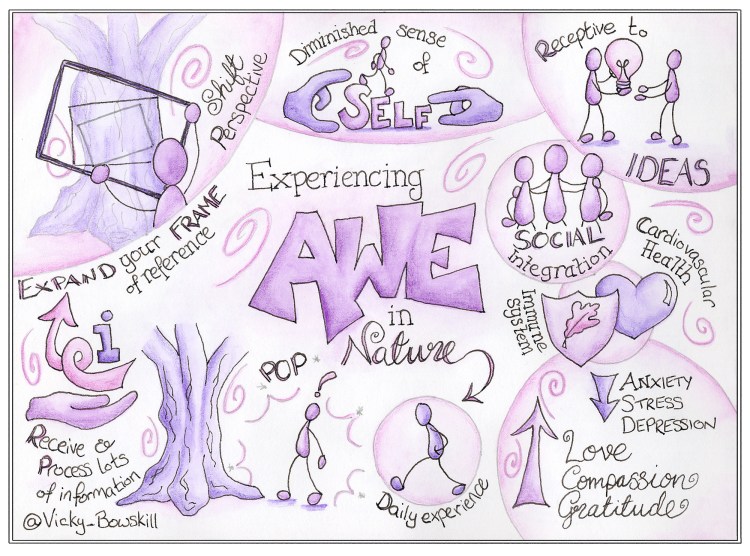 Shift
Perspective
EXPAND your FRAME
of reference
Diminished sense
of
SELF
Receptive to
IDEAS
Experiencing
AWE
in
Nature
SOCIAL
integration
Cardiovascular
Health
Immune
system
i
Receive &
Process lots
of information
POP
!
Daily experience
ANXIETY
STRESS
DEPRESSION
Love
Compassion
Gratitude
@Vicky_Bowskill